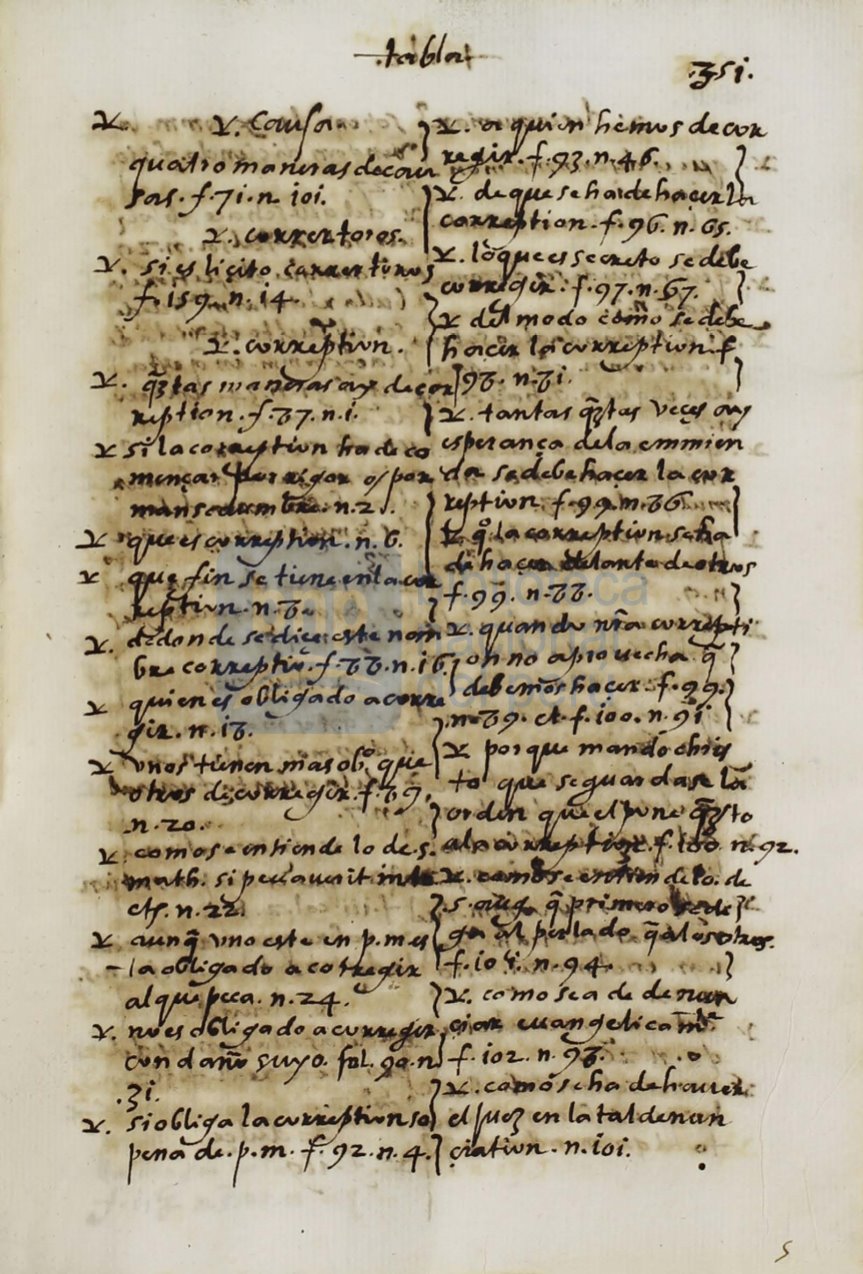 tabla
351.
V. Causa.
quatro maneras de cau
sas. f. 71. n. 101.
V. correrтoros.
V. si es liçito correr toros
f. 159. n. 14.
V. correption.
V. q̃tas maneras ay de cor
reption. f. 87. n. 1.
V si la correption ha de co
mençar por rigor o/por
mansedumbre. n. 2.
V que es correption. n. 6.
V que fin se tiene en la cor
reption. n. 8.
V. de donde se diçe este nom
bre correptiõ. f. 88. n. 16.
V quien es obligado a corre
gir. n. 18.
V unos tienen mas obᵒ. que
otros de corregir. f. 89.
n. 20.
V como se entiende lo de. s.
math. si peccaverit in te
etc̃. n. 22.
V aunq̃ uno este en p. m. es
ta obligado a corregir
al que peca. n. 24.
V. no es obligado a corregir
con daño suyo. fol. 90. n.
31.
V. si obliga la correption so
pena de. p. m. f. 92. n. 4.
V. a quien hemos de cor
regir. f. 93. n. 46.
V. de que se ha de haçer la
correption. f. 96. n. 65.
V. lo que es secreto se debe
corregir. f. 97. n. 67.
V del modo como se debe
haçer la correption. f.
98. n. 81.
V. tantas q̃tas veçes ay
esperança de la emmien
da se debe haçer la cor
reption. f. 99. n. 86.
V qᵒ la correption se ha
de haçer delante de otros
f. 99. n. 88.
V. quando nr̃a correpti
on no aprovecha q̃
debemos haçer. f. 99.
n. 89. et. f. 100. n. 91
V por que mando chris
to que se guardase la
orden que el pone q̃to
a la correption. f. 100. n. 92.
V. como se entiende lo. de
s. aug. q̃ primero se de
ga al perlado q̃ a los otros.
f. 101. n. 94.
V. como sea de denun
çiar evangelicamᵗᵉ.
f. 102. n. 98.
V. como se ha de haver
el juez en la tal denun
çiation. n. 101.
5